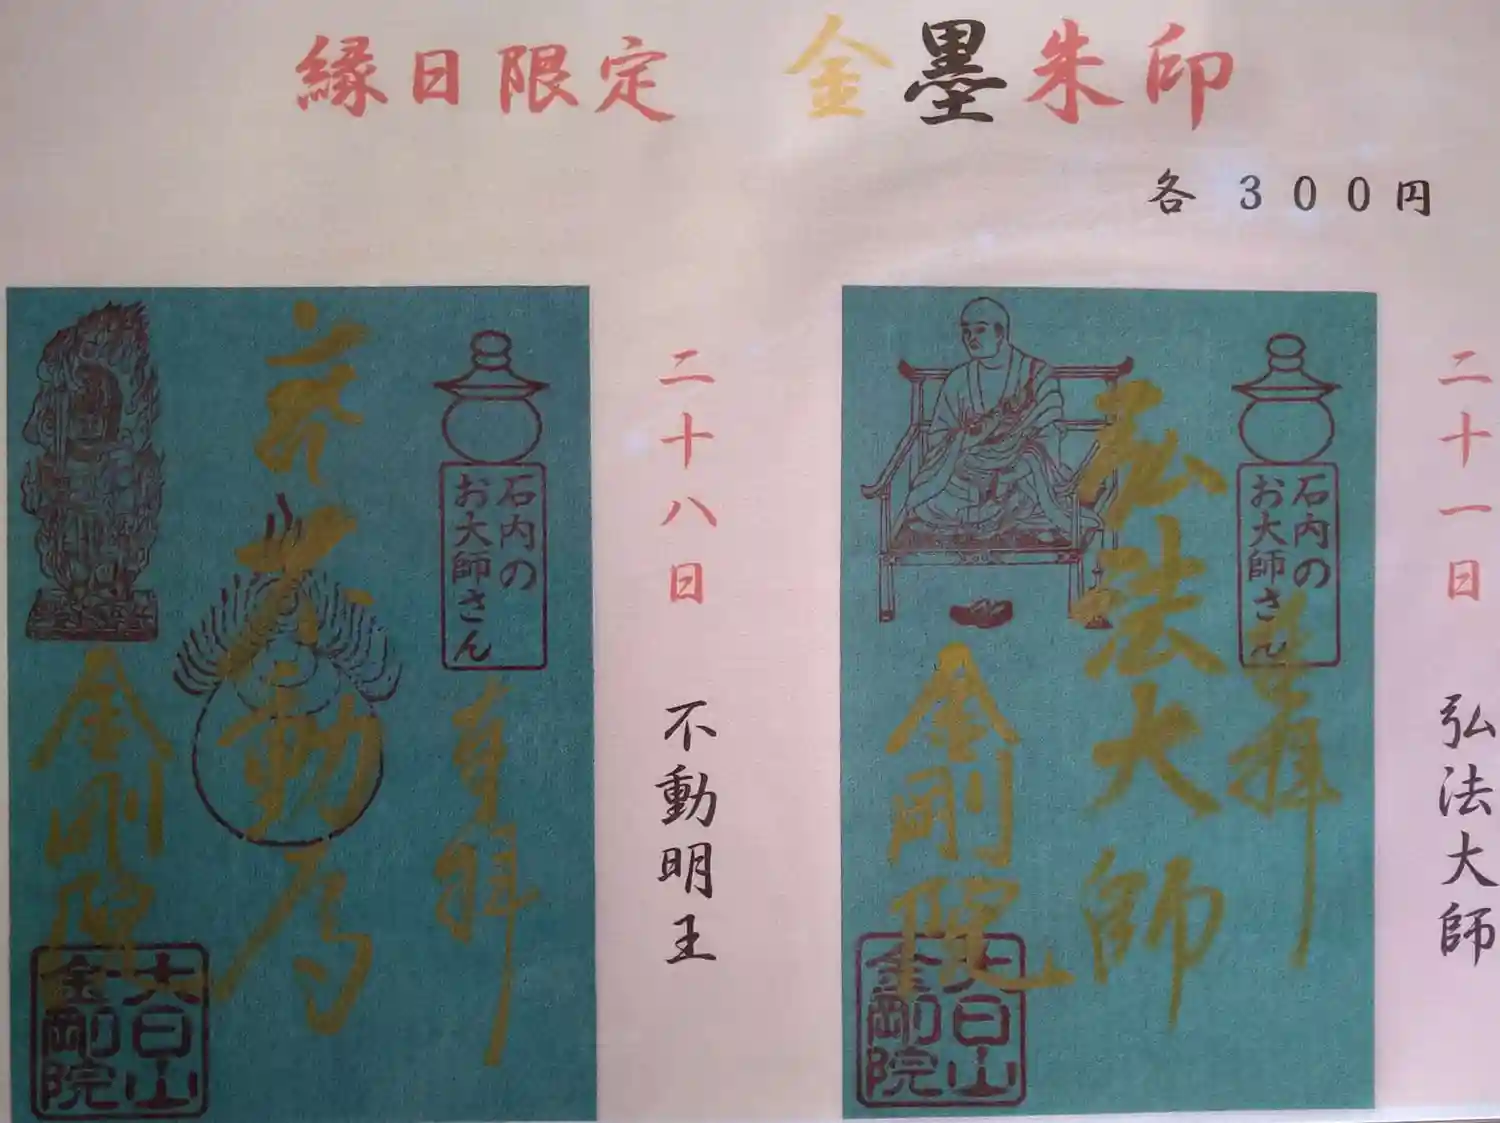 縁日限定 金墨朱印
各 300円
二十一日 弘法大師
石内の
お大師さん
奉拝
弘法大師
金剛院
大日山
金剛院
二十八日 不動明王
石内の
お大師さん
奉拝
金剛院
大日山
金剛院